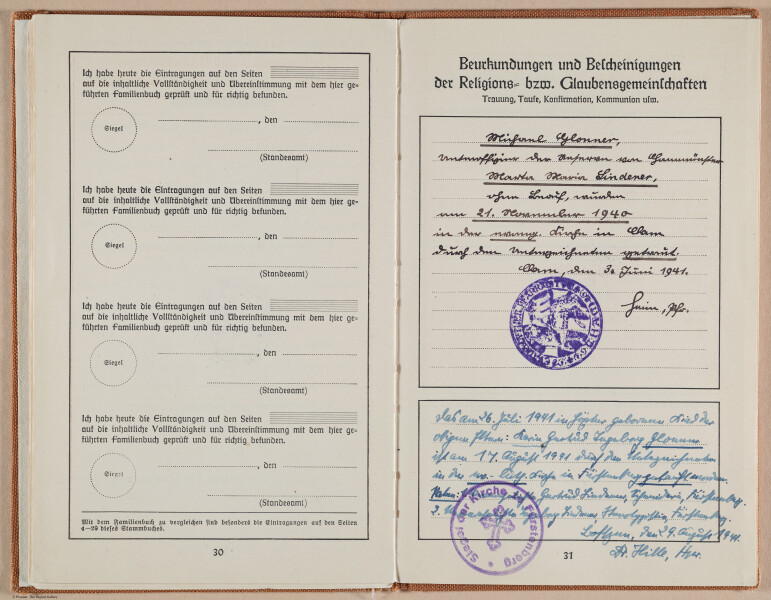 Ich habe heute die Eintragungen auf den Seiten
auf die inhaltliche Vollständigkeit und Übereinstimmung mit dem hier ge-
führten Familienbuch geprüft und für richtig befunden.
Siegel
, den
(Standesamt)
Ich habe heute die Eintragungen auf den Seiten
auf die inhaltliche Vollständigkeit und Übereinstimmung mit dem hier ge-
führten Familienbuch geprüft und für richtig befunden.
Siegel
, den
(Standesamt)
Ich habe heute die Eintragungen auf den Seiten
auf die inhaltliche Vollständigkeit und Übereinstimmung mit dem hier ge-
führten Familienbuch geprüft und für richtig befunden.
Siegel
, den
(Standesamt)
Ich habe heute die Eintragungen auf den Seiten
auf die inhaltliche Vollständigkeit und Übereinstimmung mit dem hier ge-
führten Familienbuch geprüft und für richtig befunden.
Siegel
, den
(Standesamt)
Mit dem Familienbuch zu vergleichen sind besonders die Eintragungen auf den Seiten
4—29 dieses Stammbuches.
30
Beurkundungen und Bescheinigungen
der Religions- bzw. Glaubensgemeinschaften
Trauung, Taufe, Konfirmation, Kommunion usw.
Michael Glonner,
Unteroffizier der Reserve von Chammünster
Marta Maria Linderer,
ohne Beruf, wurden
am 21. November 1940
in der evang. Kirche in Cham
durch den Unterzeichneten getraut.
Cham, den 3. Juni 1941.
Heim, Pfr.
Das am 26. Juli 1941 in Höxter geborene Kind der
obigen Eltern: Karin Gertrud Ingeborg Glonner
ist am 17. August 1941 durch den Unterzeichneten
in der ev. Kirche in Fürstenberg getauft worden.
Gertrud Linderer, Fürstenberg.
Ingeborg Linderer, Stenotypistin, Fürstenberg.
den 9. August 1941.
Hille, Pfr.
Siegel der Kirche zu Fürstenberg
31